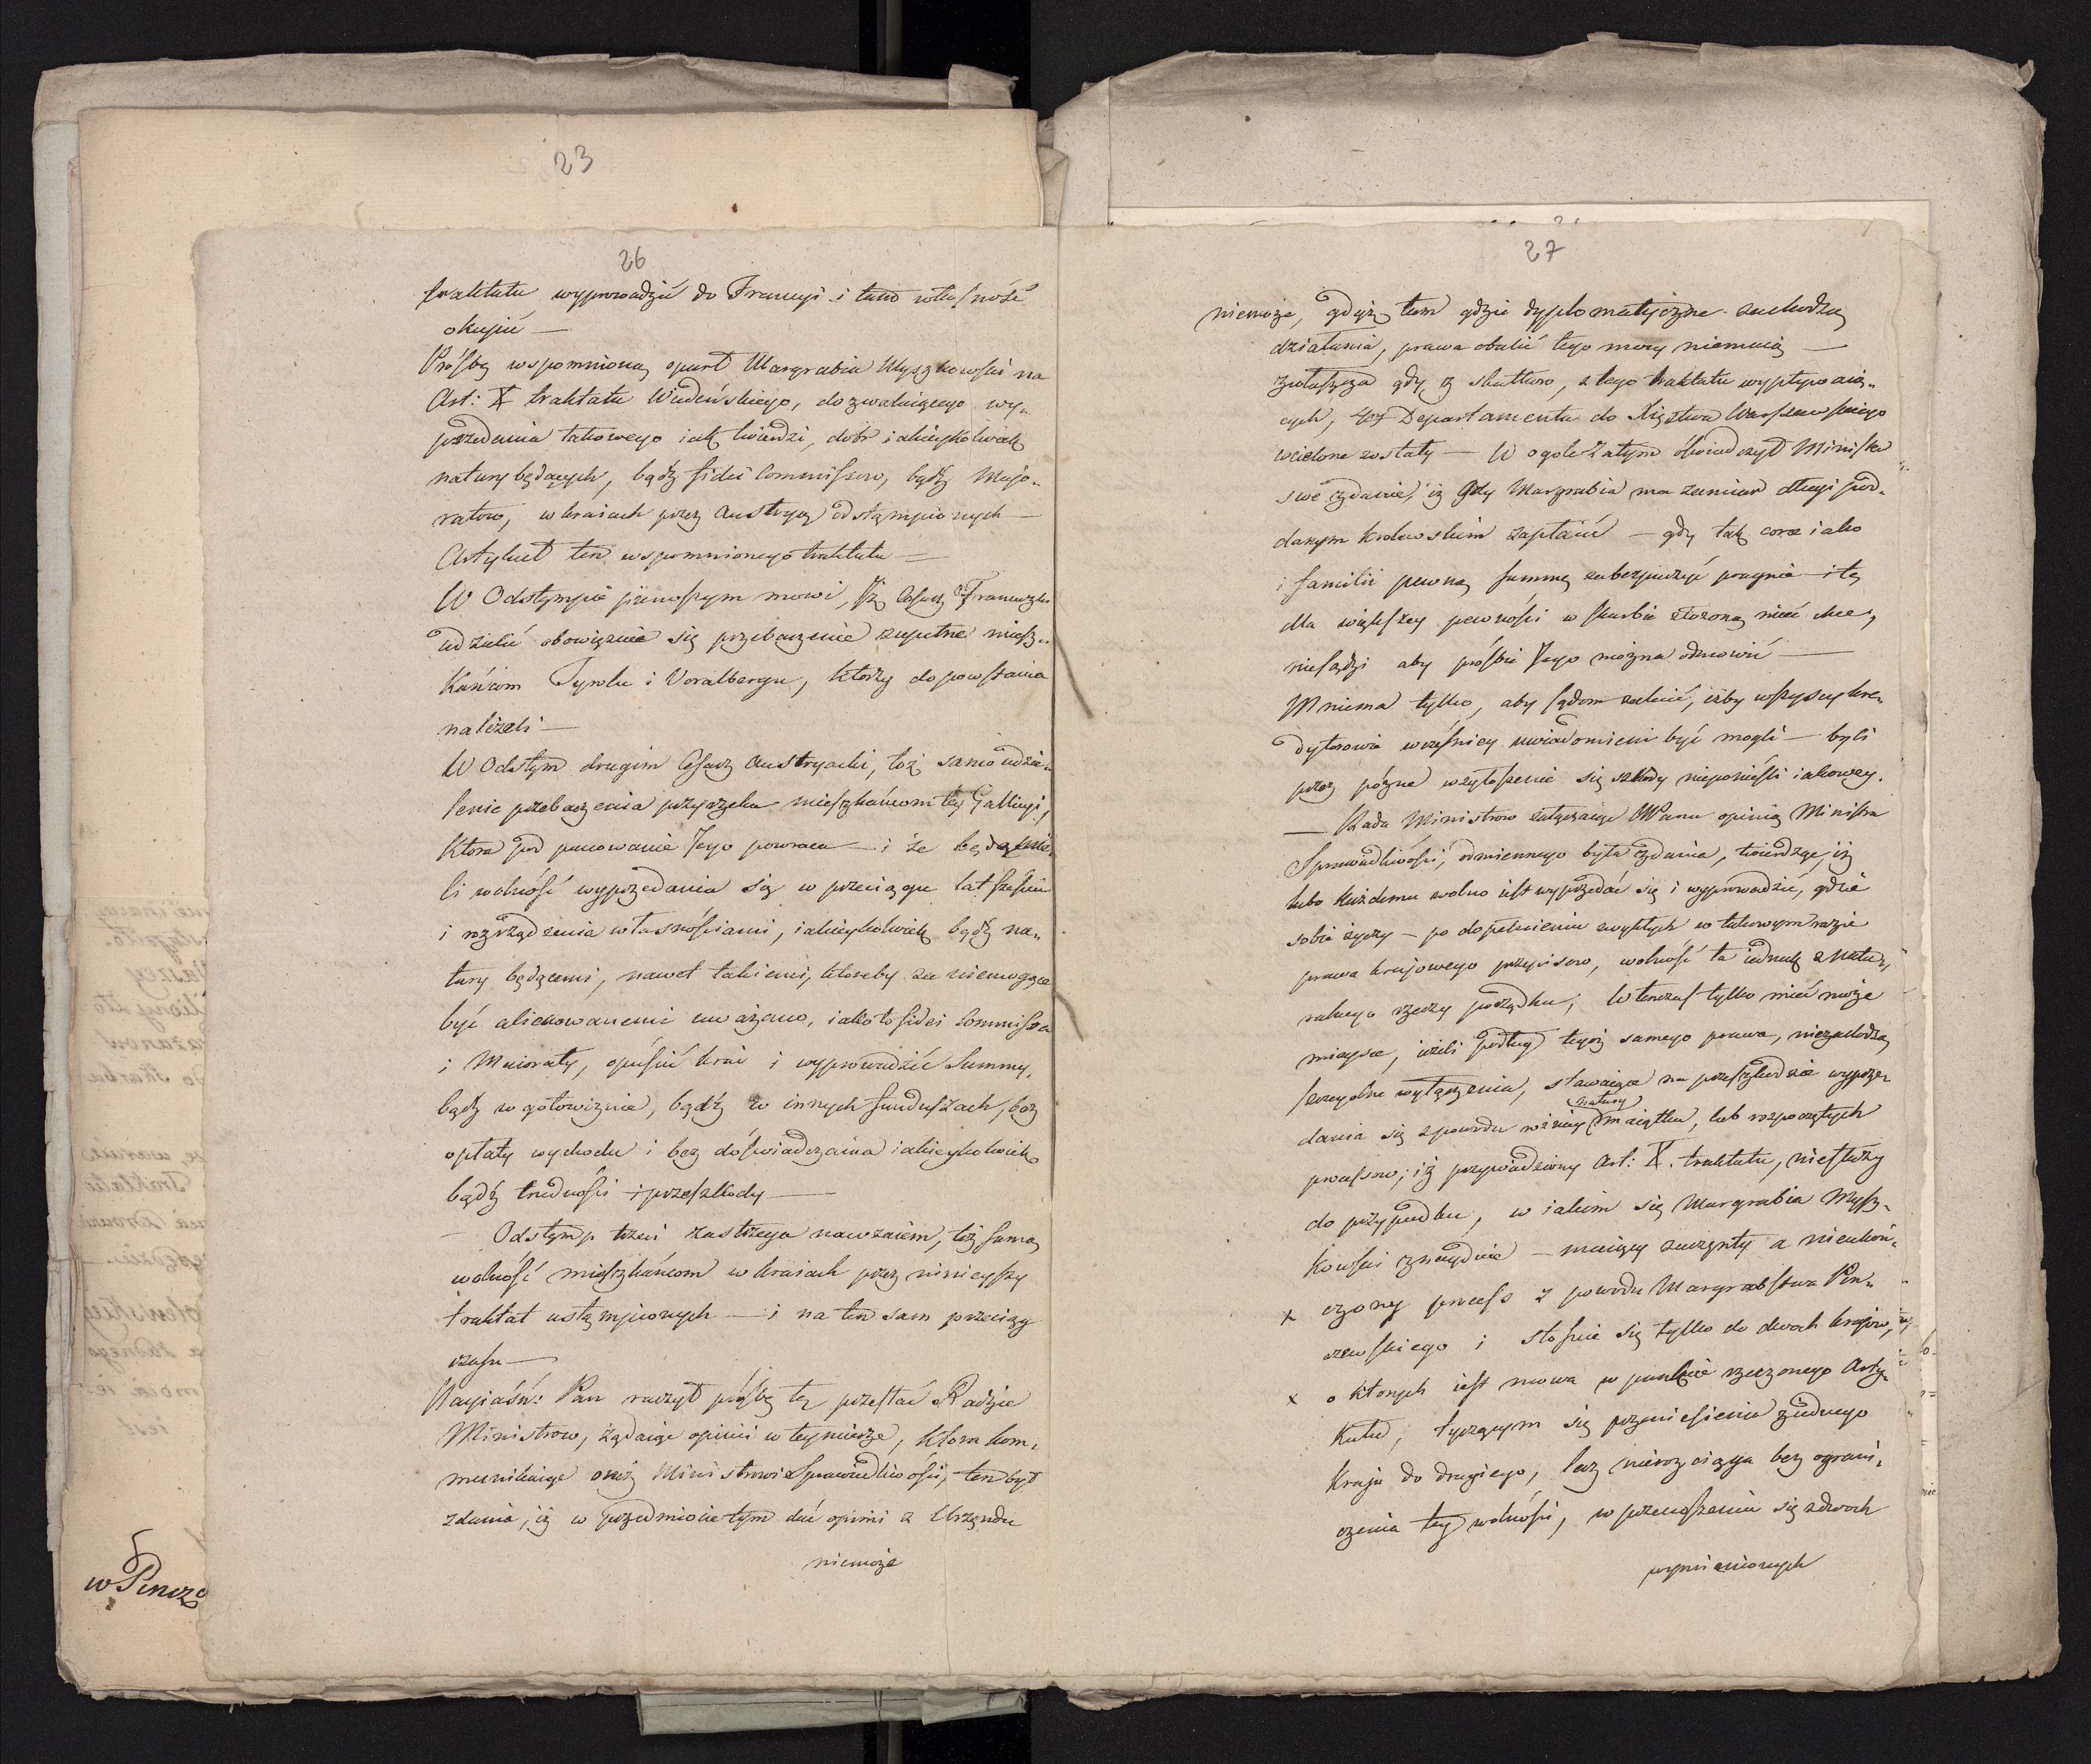 23
26
traktatu, wyprowadzić do Francyi i tam własność
okupić —
Proźbę wspomnioną oparł Margrabia Myszkowski na
Art: X traktatu Wiedeńskiego, dozwalaiącego wy„
przedania takowego iak twierdzi, dobr iakieykolwiek
natury będących, bądź fidei Commissow, bądź Majo„
ratow, w kraiach przez Austryą odstąmpionych —
Artykuł ten wspomnionego traktatu —
W Odstympie pierwszym mowi, Iż Cesarz Francuzki
udzielić obowięzuie się przebaczenie zupełne miesz„
kańcom Tyrolu i Voralbergu, ktorzy do powstania
należeli —
W Odstym. drugim Cesarz Austryacki, toż samo udzie„
lenie przebaczenia przyrzeka mieszkańcom tey Gallicyi,
ktora pod panowanie Jego powraca — i że będą mie„
li wolność wyprzedania się w przeciągu lat sześciu
i rozrządzenia własnościami, iakieykolwiek bądź na„
tury będącemi, nawet takiemi, ktoreby za niemogące
być alienowanemi uważano, iako to fidei Commissa
i Maioraty, opuścić kray i wyprowadzić Summy,
bądź w gotowiznie, bądź w innych funduszach, bez
opłaty wychodu i bez doświadczania iakieykolwiek
bądź trudności i przeszkody —
— Odstymp trzeci zastrzega nawzaiem, tęż samą
wolność mieszkańcom w kraiach przez ninieyszy
traktat ustąmpionych — i na ten sam przeciąg
czasu —
Nayiaśń: Pan raczył prośbę tę przesłać Radzie
Ministrow, żądaiąc opinii w teymierze, ktora kom„
munikuiąc oneż Ministrowi Sprawiedliwości, ten był
zdania, iż w przedmiocie tym dać opinii z Urzędu
niemoże
w Pincz
27
niemoże, gdyż tam gdzie dyplomatyczne zachodzą
działania, prawa obalić tego mocy niemaią —
zwłaszcza gdy z skutkow, z tego traktatu wypływaią„
cych, 4ry Departamenta do Xięstwa Warszawskiego
wcielone zostały — W ogole zatym oświadczył Minister
swe zdanie, iż Gdy Margrabia ma zamiar długi pod„
danym Krolewskim zapłacić — gdy tak corce iako
i familii pewną summę zabezpieczyć pragnie — i tę
dla większey pewności w skarbie złożoną mieć chce,
niesądzi aby proźbie Jego można odmowić —
Mniema tylko, aby sądom zalecić, iżby wszyscy kre„
dytorowie wcześniey uwiadomieni być mogli — byli
przez późne wzgłoszenie się szkody nieponieśli iakowey.
— Rada Ministrow załączaiąc WPanu opinią Ministra
Sprawiedliwości, odmiennego była zdania, twierdząc, iż
lubo każdemu wolno iest wyprzedać się i wyprowadzić, gdzie
sobie życzy — po dopełnieniu zwykłych w takowym razie
prawa krajowego przepisow, wolność ta iednak z natu„
ralnego rzeczy porządku, wtenczas tylko mieć może
mieysce, ieżeli podług tegoż samego prawa, niezachodzą
szczegolne wyłączenia, stawaiące na przeszkodzie wyprze„
dania się z powodu rożney natury maiątku, lub rozpoczętych
processow; iż przywiedziony Art: X. traktatu, niesłuży
do przypadku, w iakim się Margrabia Mysz„
kowski znayduie — maiący zaczęty a nieukoń„
x czony process z powodu Margrabstwa Pin„
czowskiego i stosuie się tylko do dwoch krajow,
x o ktorych iest mowa w punkcie rzeczonego Arty„
kułu, tyczącym się przeniesienia z iednego
kraju do drugiego, lecz nierozciąga bez ograni„
czenia tey wolności, w przenoszeniu się z dwoch
wymienionych